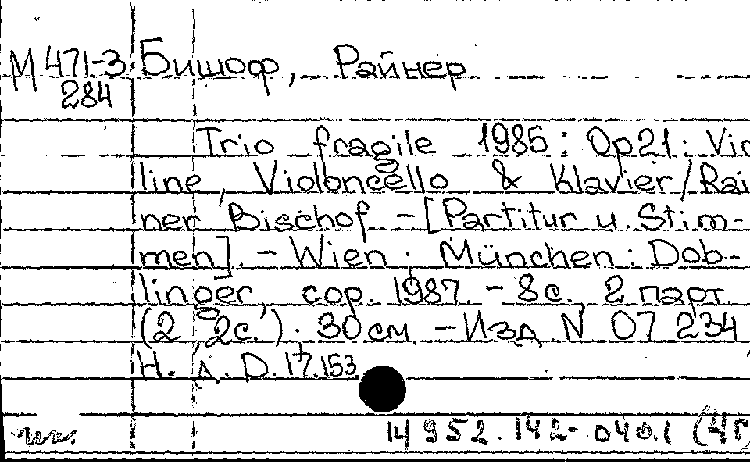 М 471-3 Бишоф, Райнер
284
Trio fragile 1985 : Op 21 : Vio
line, Violoncello & Klavier / Rai
ner Bischof - [Partitur u. Stim-
men]. - Wien ; München : Dob-
linger, cop. 1987. - 8 с., 2 парт.
(2, 2 с.) ; 30 см. - Изд. N 07 234
Н. д. D. 17.153
14 952. 142- 040.1 (4Г